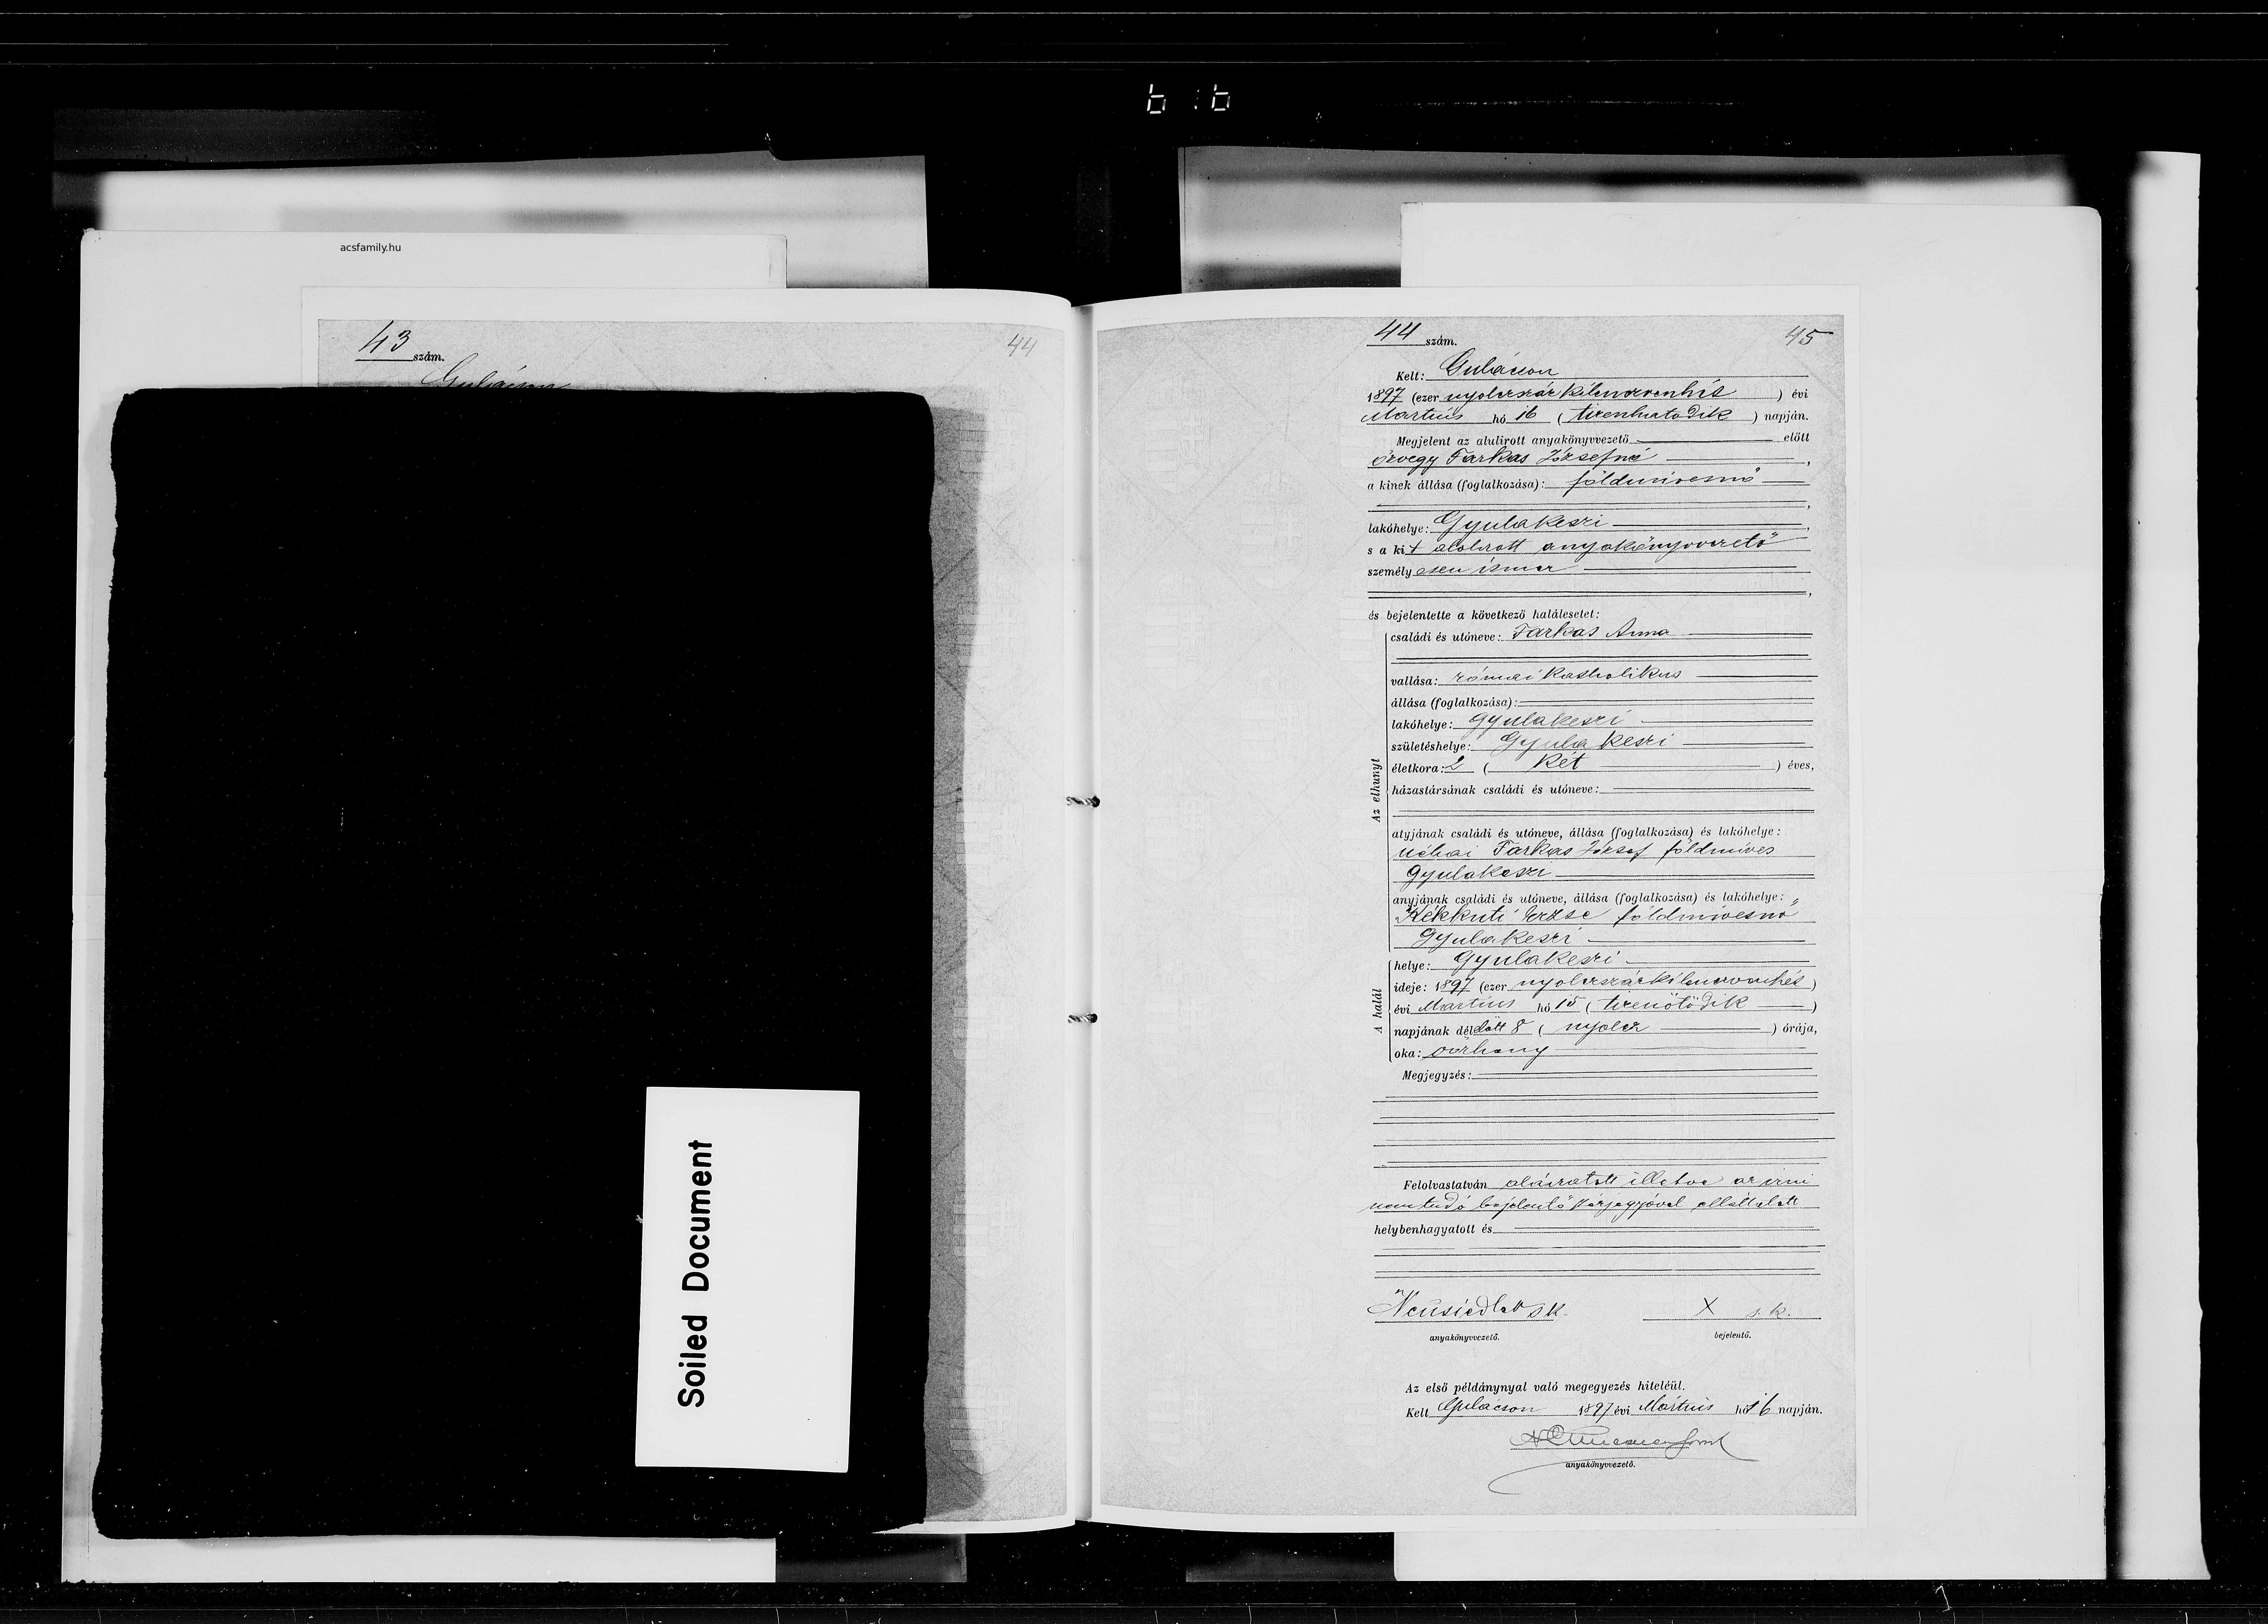 acsfamily.hu
43 szám.
44
Gulácson
Soiled Document
44 szám.
45
Kelt: Gulácson
1897 (ezer nyolczszáz kilenczvenhét ) évi
Martius hó 16 ( tizenhatodik ) napján.
Megjelent az alulirott anyakönyvvezető előtt
özvegy Farkas Józsefné ,
a kinek állása (foglalkozása): földmívesnő
,
lakóhelye: Gyulakeszi ,
s a kit alolirott anyakönyvvezető
személyesen ismer
,
és bejelentette a következő halálesetet:
Az elhunyt
családi és utóneve: Farkas Anna
vallása: római katholikus
állása (foglalkozása):
lakóhelye: Gyulakeszi
születéshelye: Gyulakeszi
életkora: 2 ( két ) éves,
házastársának családi és utóneve:
atyjának családi és utóneve, állása (foglalkozása) és lakóhelye:
néhai Farkas József földmíves
Gyulakeszi
anyjának családi és utóneve, állása (foglalkozása) és lakóhelye:
Kékkuti Erzse földmívesnő
Gyulakeszi
A halál
helye: Gyulakeszi
ideje: 1897 (ezer nyolczszázkilenczvenhét )
évi Martius hó 15 ( tizenötödik )
napjának délelőtt 8 ( nyolcz ) órája,
oka: vörheny
Megjegyzés:
Felolvastatván aláiratott illetve az irni
nem tudó bejelentő kézjegyével elláttatott
helybenhagyatott és
Neusiedler sk.
X s. k.
anyakönyvvezető.
bejelentő.
Az első példánynyal való megegyezés hiteléül.
Kelt Gulácson 1897 évi Mártius hó 16 napján.
anyakönyvvezető.